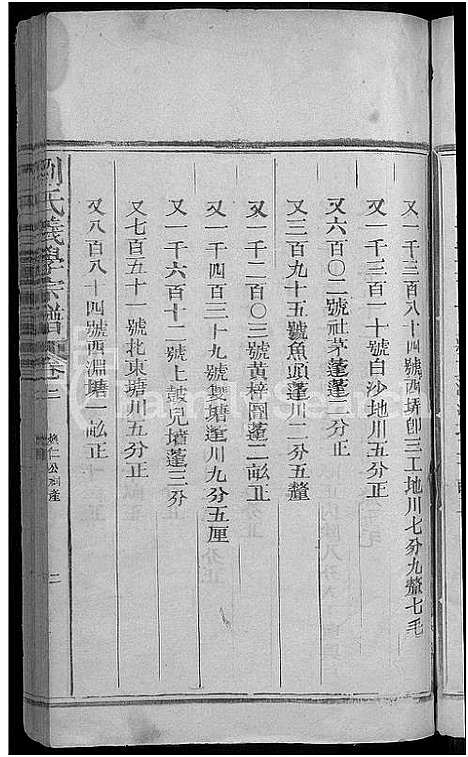 又一千三百八十四號西塝卽三工地川七分九釐七毛
又一千三百一十號白沙地川五分正
又六百〇二號社茅蓬蓬三分正
又三百九十五號魚頭蓬川二分五釐
又一千二百〇三號黃梓園蓬二畝正
又一千四百三十九號雙塘蓬川九分五厘
又一千六百十二號上鼓兒墻蓬三分
又七百五十一號北東塘川五分正
又八百八十四號西淵塘一畝正
劉氏義學宗譜 卷二 仁公祠產 二